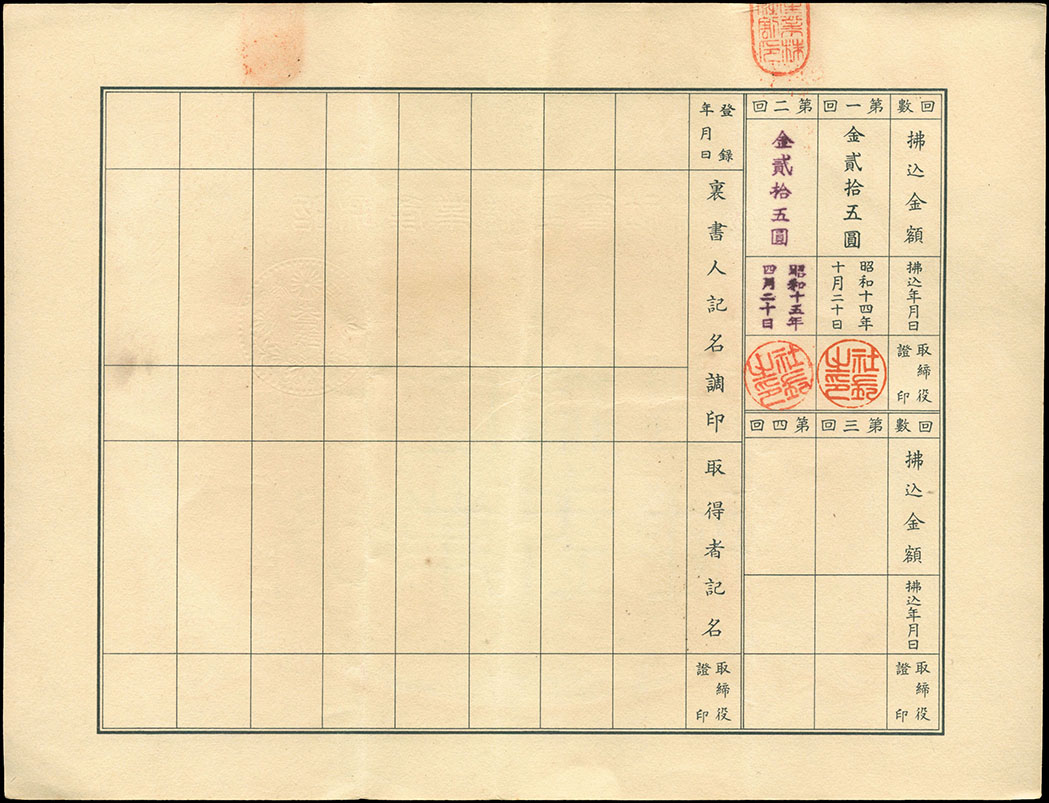 回數
第一回
第二回
拂込金額
金貳拾五圓
金貳拾五圓
拂込年月日
昭和十四年
十月二十日
昭和十五年
四月二十日
取締役
證印
社長
之印
社長
之印
回數
第三回
第四回
拂込金額
拂込年月日
取締役
證印
登錄
年月日
裏書人記名調印
取得者記名
取締役
證印
業株